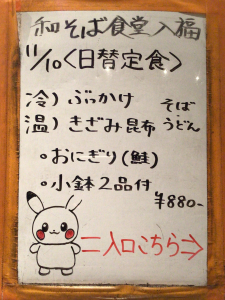 和そば食堂 入福
11/10〈日替定食〉
冷）ぶっかけ そば
温）きざみ昆布 うどん
・おにぎり（鮭）
・小鉢2品付
¥880-
＝入口こちら⇒